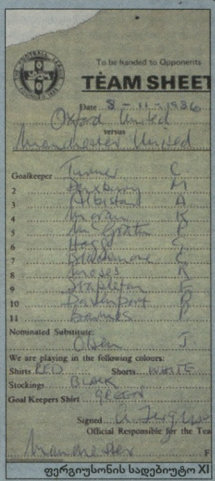 To be handed to Opponents
TEAM SHEET
Date 8-11-1986
Oxford United
versus
Manchester United
Goalkeeper Turner C
2 Duxbury M
3 Albiston A
4 Moran K
5 McGrath P
6 Hogg G
7 Blackmore C
8 Moses R
9 Stapleton F
10 Davenport P
11 Barnes P
Nominated Substitute:
Olsen J
We are playing in the following colours:
Shirts RED Shorts WHITE
Stockings BLACK
Goal Keepers Shirt GREEN
Signed
Official Responsible for the Tea
Manchester F
ფერგიუსონის სადებიუტო XI